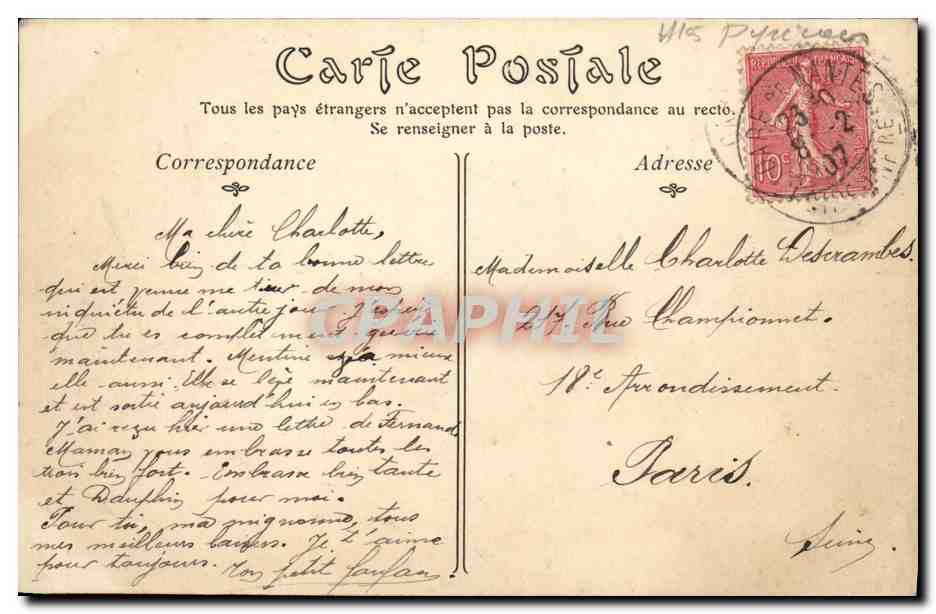 Hts Pyrénées
Carte Postale
Tous les pays étrangers n'acceptent pas la correspondance au recto.
Se renseigner à la poste.
Correspondance
Adresse
REPUBLIQUE FRANÇAISE
10c
NANTES
23
8 - 2
07
Ma chère Charlotte,
Merci bien de ta bonne lettre
qui est venue me tirer de mon
inquiétude de l'autre jour.
que tu es complètement guérie
maintenant. Mentine va mieux
elle aussi. Elle se lève maintenant
et est sortie aujourd'hui en bas.
J'ai reçu hier une lettre de Fernand
Maman vous embrasse toutes les
trois bien fort. Embrasse bien tante
et Dauphin pour moi.
Pour toi, ma mignonne, tous
mes meilleurs baisers. Je t'aime
pour toujours. Ton petit fanfan
Mademoiselle Charlotte Descrambes.
217 Rue Championnet.
18e Arrondissement.
Paris.
Seine.
CPAPHIL